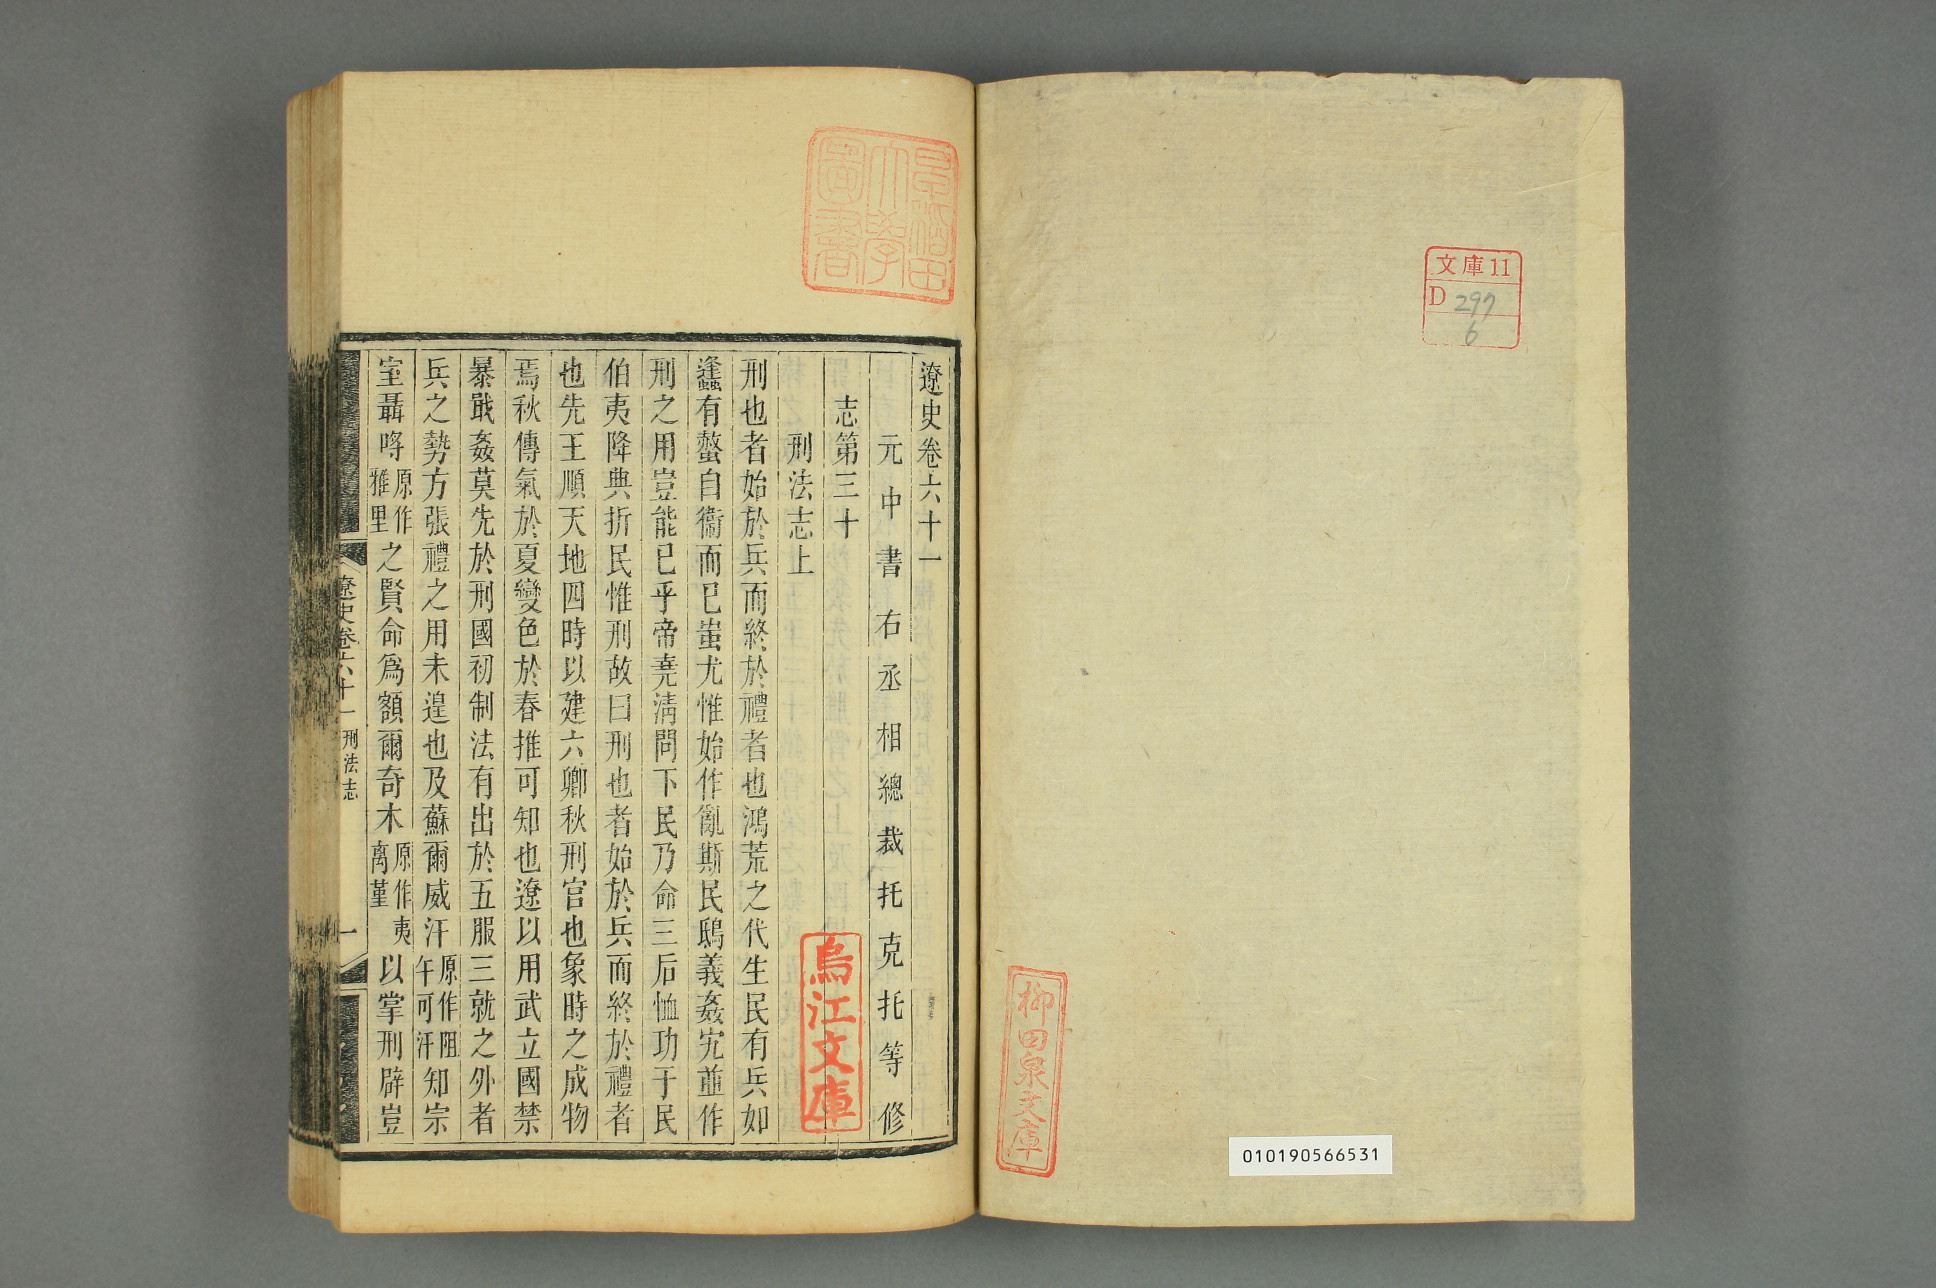 文庫11
D 297
6
柳田泉文庫
010190566531
早稲田大學圖書
遼史卷六十一
元中書右丞相總裁托克托等修
志第三十
刑法志上
烏江文庫
刑也者始於兵而終於禮者也鴻荒之代生民有兵如
逢蠭有螫自衞而已蚩尤惟始作亂斯民鴟義姦宄並作
刑之用豈能已乎帝堯淸問下民乃命三后恤功于民
伯夷降典折民惟刑故曰刑也者始於兵而終於禮者
也先王順天地四時以建六卿秋刑官也象時之成物
焉秋傳氣於夏變色於春推可知也遼以用武立國禁
暴戢姦莫先於刑國初制法有出於五服三就之外者
兵之勢方張禮之用未遑也及蘇爾威汗原作阻午可汗知宗
室聶哷原作雅里之賢命爲額爾奇木原作夷离菫以掌刑辟豈
遼史卷六十一 刑法志 一